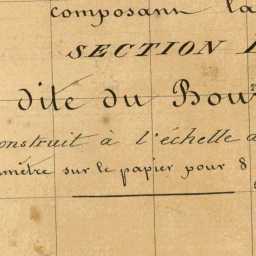 composant la
SECTION
dite du Bou
onstruit à l'échelle
mètre sur le papier pour 8